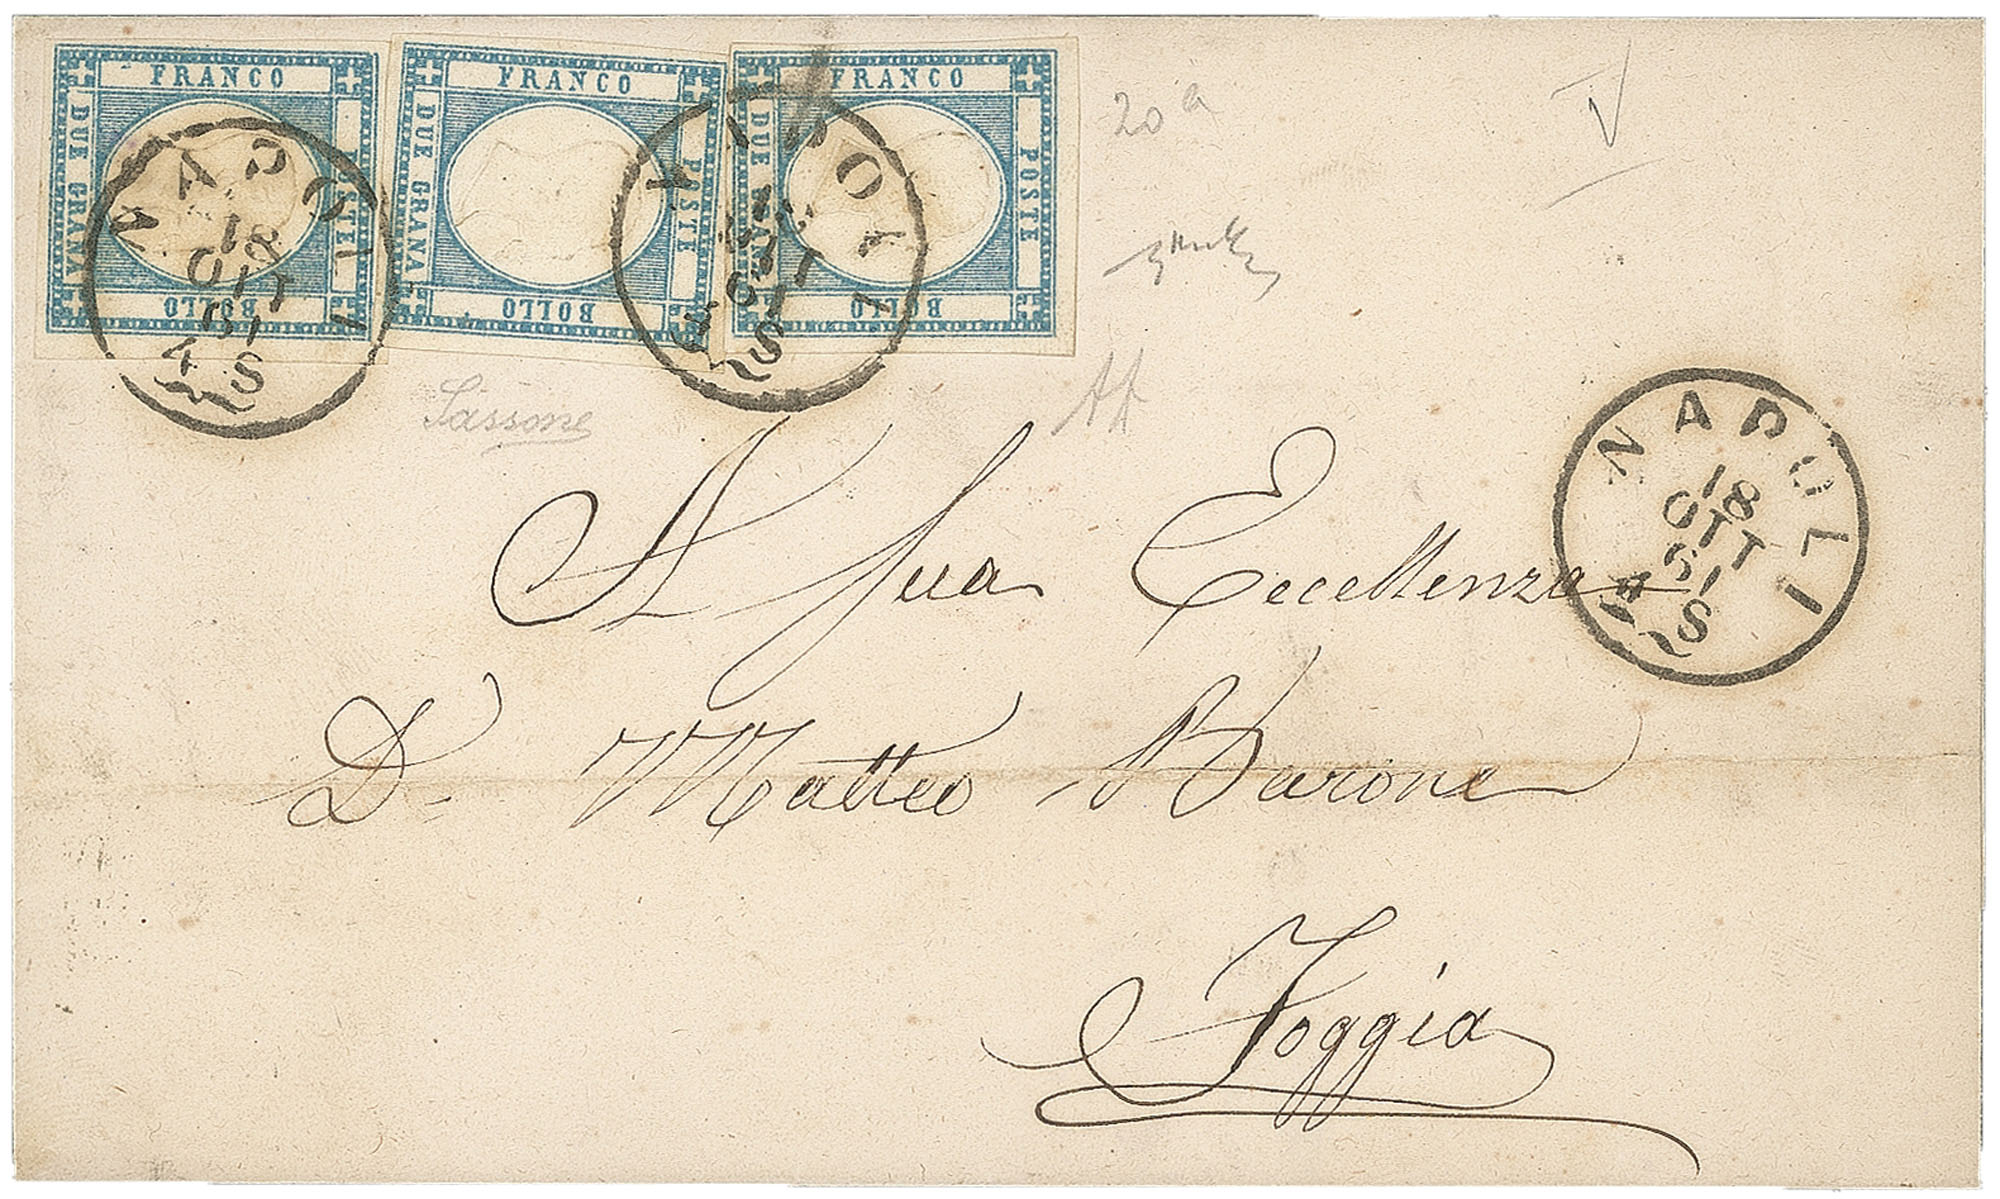 FRANCO
DUE GRANA
POSTE
BOLLO
FRANCO
DUE GRANA
POSTE
BOLLO
FRANCO
DUE GRANA
POSTE
BOLLO
NAPOLI
18
OTT
61
4 S
NAPOLI
18
OTT
61
4 S
20a
V
Sassone
NAPOLI
18
OTT
61
4 S
A Sua Eccellenza
Dn Matteo Barone
Foggia